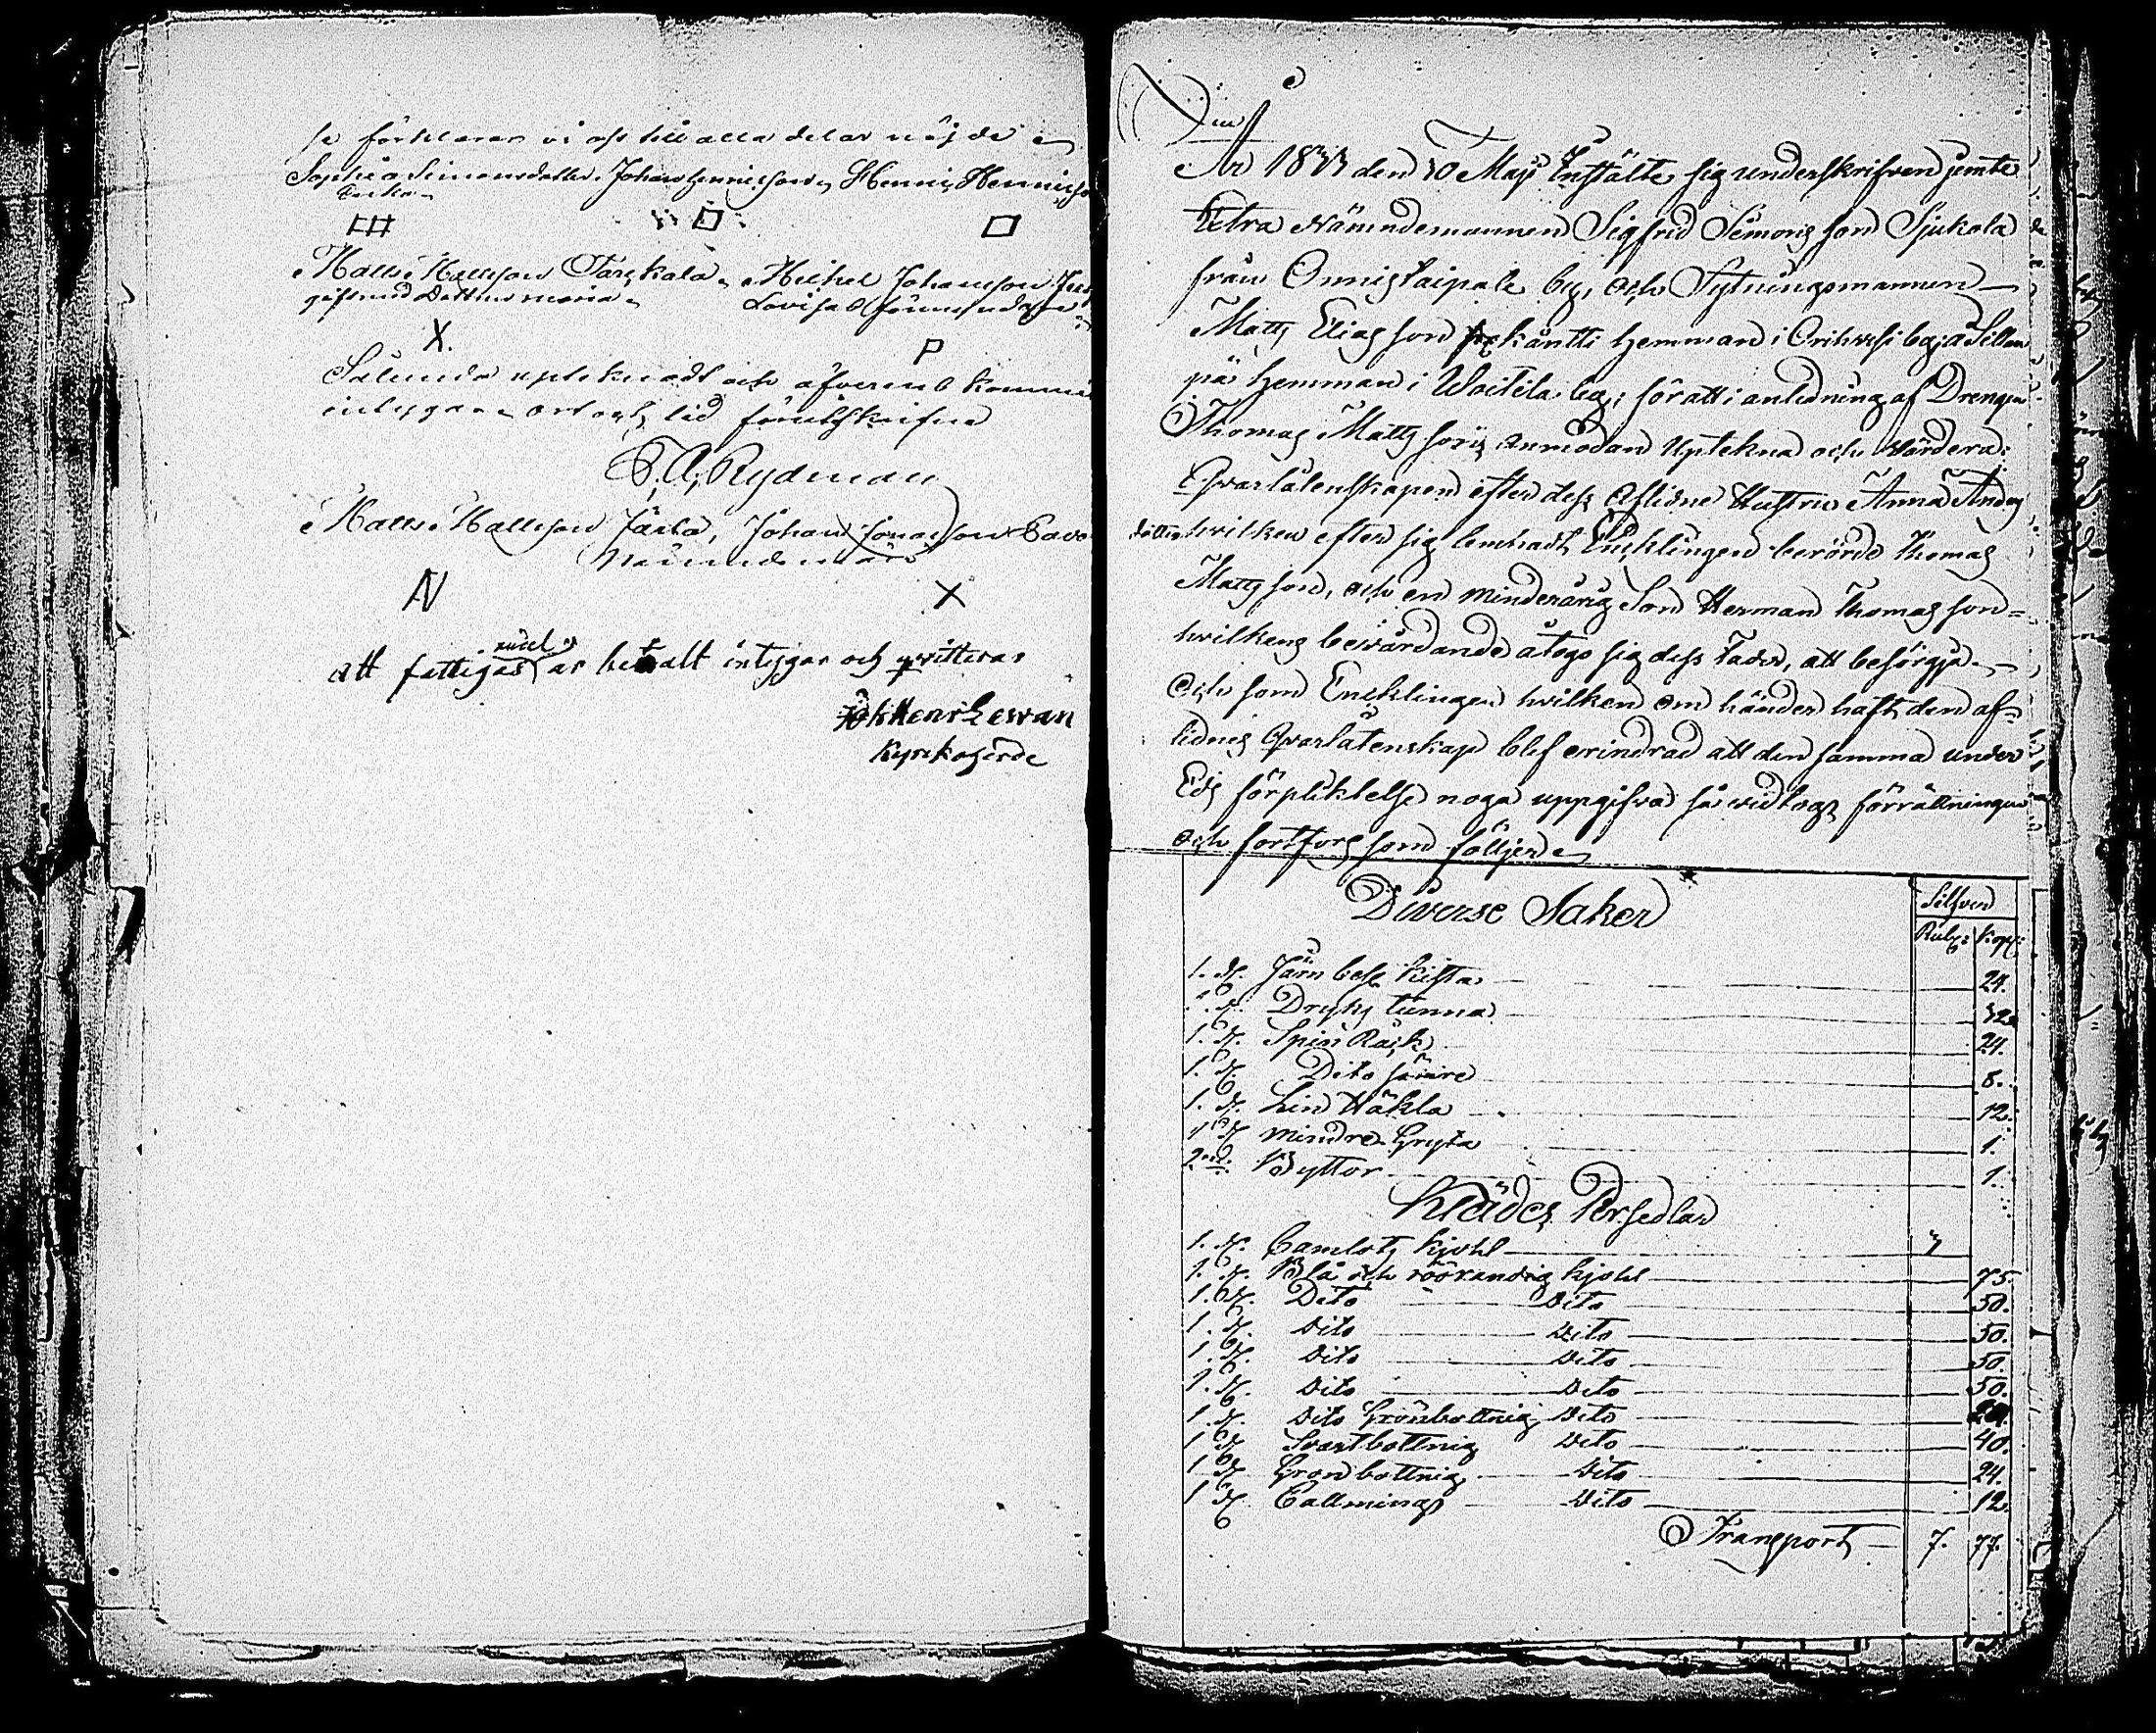 så förklarar vi oss till alla delar nöjde
Sophia Simonsdotter Johan Hennicsson, Henric Hennics
Enka
Matts Mattsson Michel Johansson
gift med Dottren Maria
X. P
Sålunda upteknadt och
intygar ort och tid förutskrifne
Rydman
Matts Mattsson Johan Jonasson
Nämndemän
N X
att fattigas andel är betalt intygar och qvitteras
Kyrkoherde
År 18 den 30 Maji Instälte sig underskrifven jemte
Extra Nämndemannen Sigfrid Simonsson Sjukola
från Onnistaipale by, och Sytningsmannen
Matts Eliasson kantti hemman i Orihvesi by, å
på hemman i Woitila by; för att i anledning af Drengen
Thomas Mattssons anmodan Uptekna och Värdera
Qvarlåtenskapen efter dess Aflidne Hustru Anna Anders
dotter hvilken efter sig lemnadt Encklingen berörde Thomas
Mattsson, och en minderårig Son Herman Thomasson
hvilkens bevårdande åtogs sig dess Fader, att besörgja.
Och som Encklingen hvilken om händer haft den af-
lidnes Qvarlåtenskap blef erindrad att den samma under
Eds förpliktelse noga uppgifva så vidtogs förrättningen
och fortfors som följer
Diverse Saker
Silfver
Rub: Kop:
1. st. Järn besl. kista 24.
1. st. Drycks tunna 32
1. st. Spin Råck 24.
1. st. Dito sämre 8.
1. st. Lin Häkla 12.
1 st mindre Gryta 1.
2ne Byttor 1.
Klädes Persedlar
1. st. Camlots kjohl 3
1. st. Blå och röörandig kjohl 75.
1. st. Dito Dito 50.
1. st. Dito Dito 50.
1. st. Dito Dito 50.
1. st. Dito Dito 50.
1. st. Dito Grönbottnig Dito
1 st Svartbottnig Dito 40.
1 st Grönbottnig Dito 24.
1 st Callmings Dito 12.
Transport 7. 77.